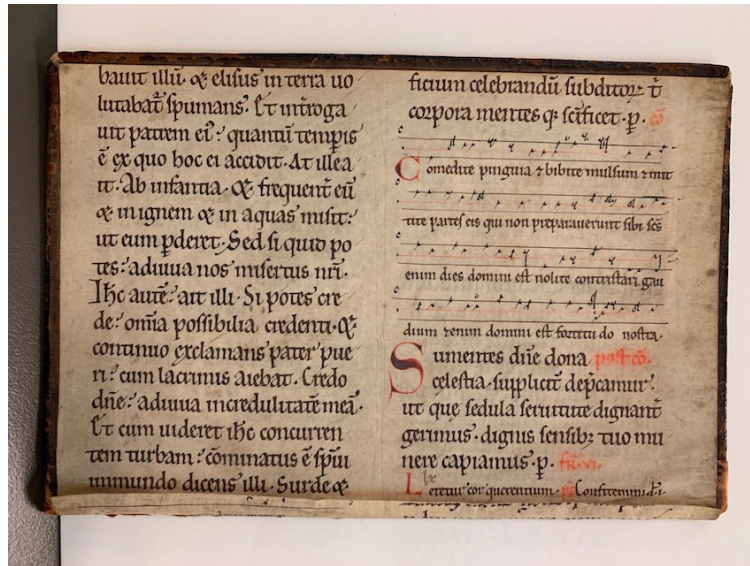 bauit illũ· & elisus in terra uo
lutabat̃ spumans· Et introga
uit patrem ei᷒· quantũ temporis
ẽ ex quo hoc ei accidit· At ille a
it· Ab infantia· & frequent̃ eũ
& in ignem & in aquas misit·
ut eum ꝑderet· Sed si quid po
tes· adiuua nos misertus nr̃i·
Ihc autẽ· ait illi· Si potes cre
de· om̃ia possibilia credenti· &
continuo exclamans pater pue
ri· cum lacrimis aiebat· Credo
dñe· adiuua incredulitatẽ meã·
Et cum uideret ihc concurren
tem turbam· cõminatus ẽ sp̃ui
inmundo dicens illi· Surde &
ficium celebrandũ subditoꝝ t̃
corpora mentes q; sc̃ificet· ꝑ· cõ
Comedite pinguia ⁊ bibite mulsum ⁊ mit
tite partes eis qui non preparauerunt sibi sc̃s
enim dies domini est nolite contristari gau
dium ⁊enim domini est fortitudo nostra·
Sumentes dñe dona post cõ·
celestia· suppliciť dep̃camur·
ut quę sedula seruitute dignant̃
gerimus· dignis sensib; tuo mu
nere capiamus· ꝑ· fr̃· vi·
Letetur cor querentium· p̃s Confitemini d·i·